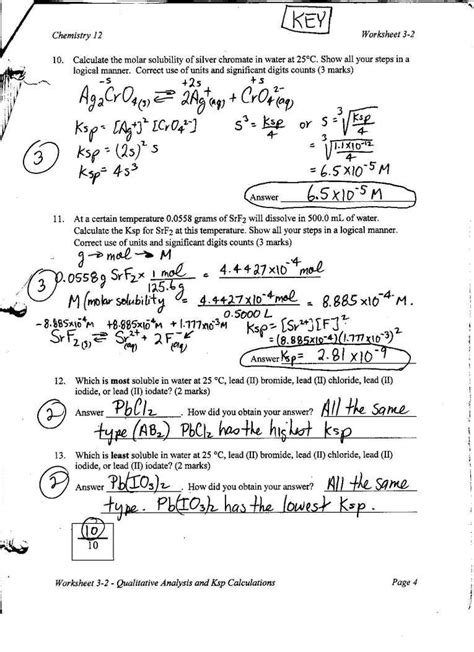 KEY
Chemistry 12 Worksheet 3-2
10. Calculate the molar solubility of silver chromate in water at 25°C. Show all your steps in a
logical manner. Correct use of units and significant digits counts (3 marks)
-s +2s +s
Ag2CrO4(s) ⇌ 2Ag+(aq) + CrO4^2-(aq)
Ksp = [Ag+]^2 [CrO4^2-] s^3 = Ksp/4 or s = ∛(Ksp/4)
3 Ksp = (2s)^2 s = ∛(1.1x10^-12/4)
Ksp = 4s^3 = 6.5x10^-5 M
Answer 6.5x10^-5 M
11. At a certain temperature 0.0558 grams of SrF2 will dissolve in 500.0 mL of water.
Calculate the Ksp for SrF2 at this temperature. Show all your steps in a logical manner.
Correct use of units and significant digits counts (3 marks)
g → mol → M
3 0.0558g SrF2 x 1 mol/125.6g = 4.4427x10^-4 mol
M (molar solubility = 4.4427x10^-4 mol/0.5000 L = 8.885x10^-4 M.
-8.885x10^-4M +8.885x10^-4M +1.777x10^-3M Ksp = [Sr2+][F-]^2
SrF2(s) ⇌ Sr2+(aq) + 2F-(aq) = (8.885x10^-4)(1.777x10^-3)^2
Answer Ksp = 2.81x10^-9
12. Which is most soluble in water at 25 °C, lead (II) bromide, lead (II) chloride, lead (II)
iodide, or lead (II) iodate? (2 marks)
2 Answer PbCl2. How did you obtain your answer? All the same
type (AB2) PbCl2 has the highest Ksp
13. Which is least soluble in water at 25 °C, lead (II) bromide, lead (II) chloride, lead (II)
iodide, or lead (II) iodate? (2 marks)
2 Answer Pb(IO3)2. How did you obtain your answer? All the same
type. Pb(IO3)2 has the lowest Ksp.
10
10
Worksheet 3-2 - Qualitative Analysis and Ksp Calculations Page 4